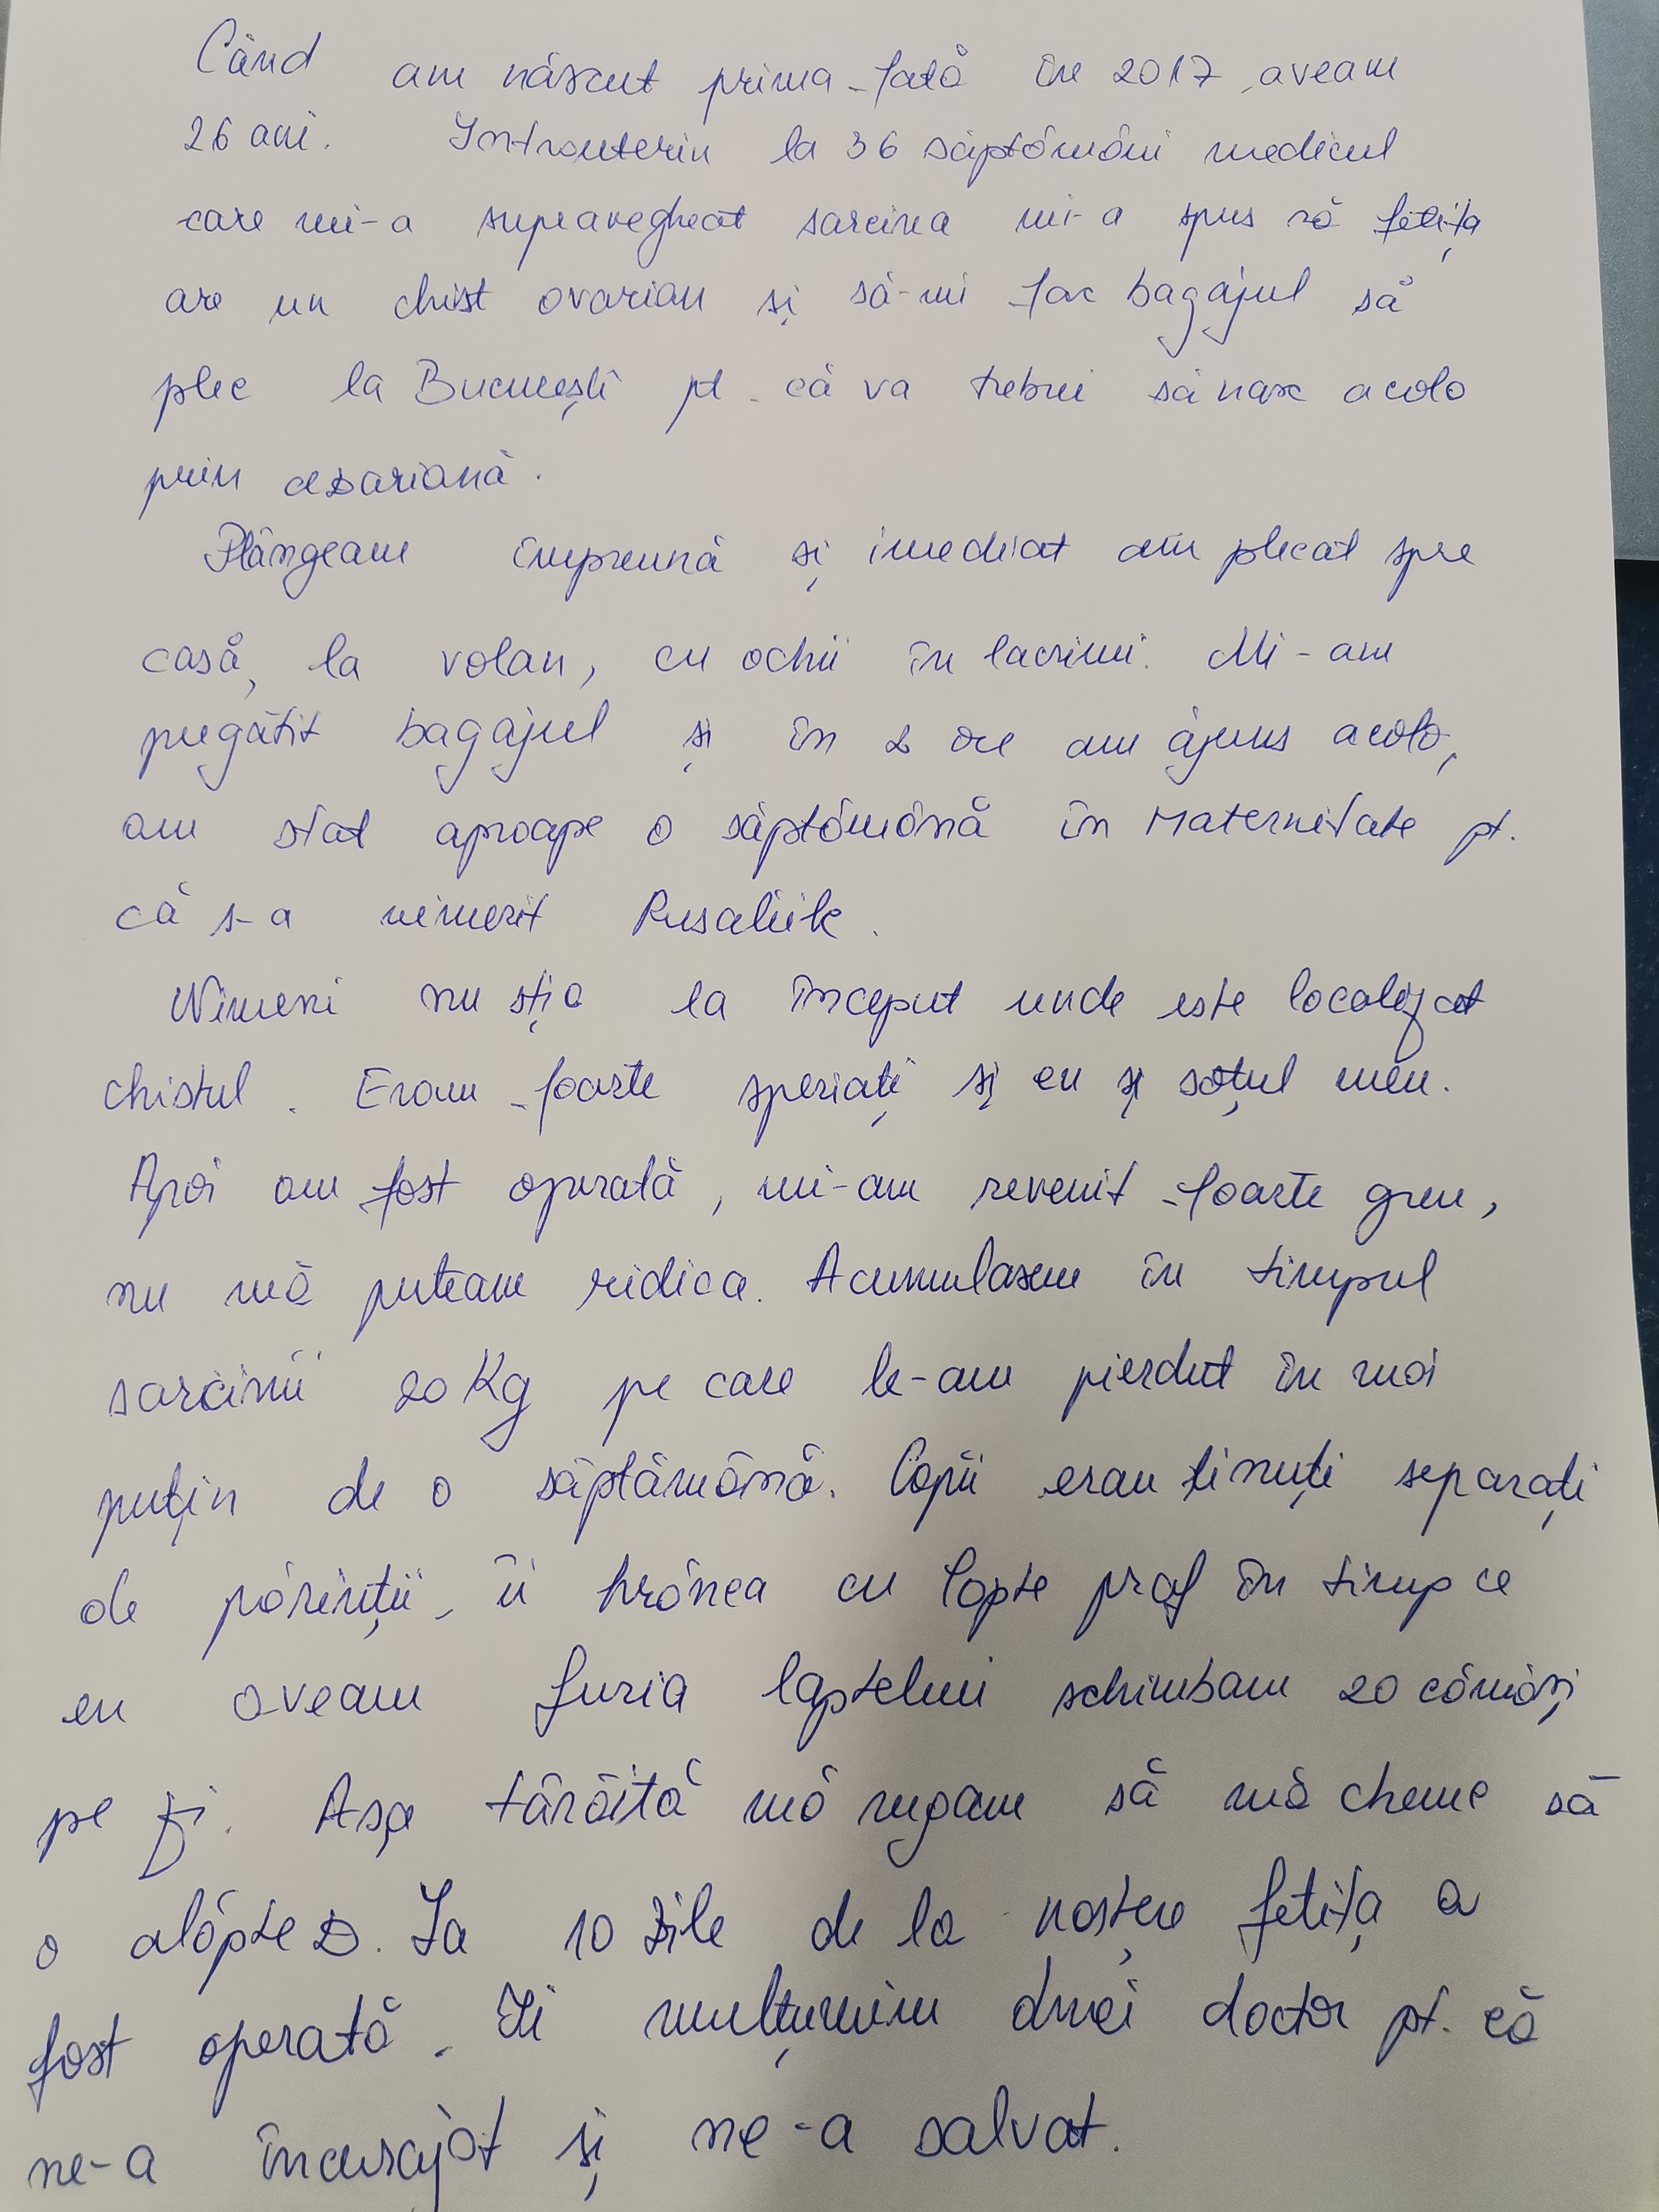 Când am născut prima fată în 2017, aveam
26 ani. Intrauterin la 36 săptămâni medicul
care mi-a supravegheat sarcina mi-a spus că fetița
are un chist ovarian și să-mi fac bagajul să
plec la București pt. că va trebui să nasc acolo
prin cezariană.
Plângeam împreună și imediat am plecat spre
casă, la volan, cu ochii în lacrimi. Mi-am
pregătit bagajul și în 2 ore am ajuns acolo,
am stat aproape o săptămână în Maternitate pt.
că s-a nimerit Rusaliile.
Nimeni nu știa la început unde este localizat
chistul. Eram foarte speriați și eu și soțul meu.
Apoi am fost operată, mi-am revenit foarte greu,
nu mă puteam ridica. Acumulasem în timpul
sarcinii 20 Kg pe care le-am pierdut în mai
puțin de o săptămână. Copii erau ținuți separați
de părinții, îi hrănea cu lapte praf în timp ce
eu aveam furia laptelui schimbam 20 cămăși
pe zi. Așa târâită mă rugam să mă cheme să
o alăptez. La 10 zile de la naștere fetița a
fost operată. Îi mulțumim dnei doctor pt. că
ne-a încurajat și ne-a salvat.